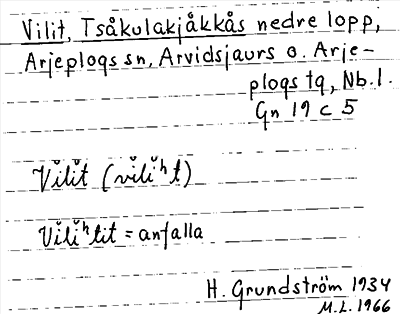 Vilit, Tsåkulakjåkkås nedre lopp,
Arjeplogs sn, Arvidsjaurs o. Arje-
plogs tg, Nb. l.
Gn 19 c 5
V̆ĭlĭt (vĭlĭʰt)
Vĭlĭʰtit = anfalla
H. Grundström 1934
M.L. 1966